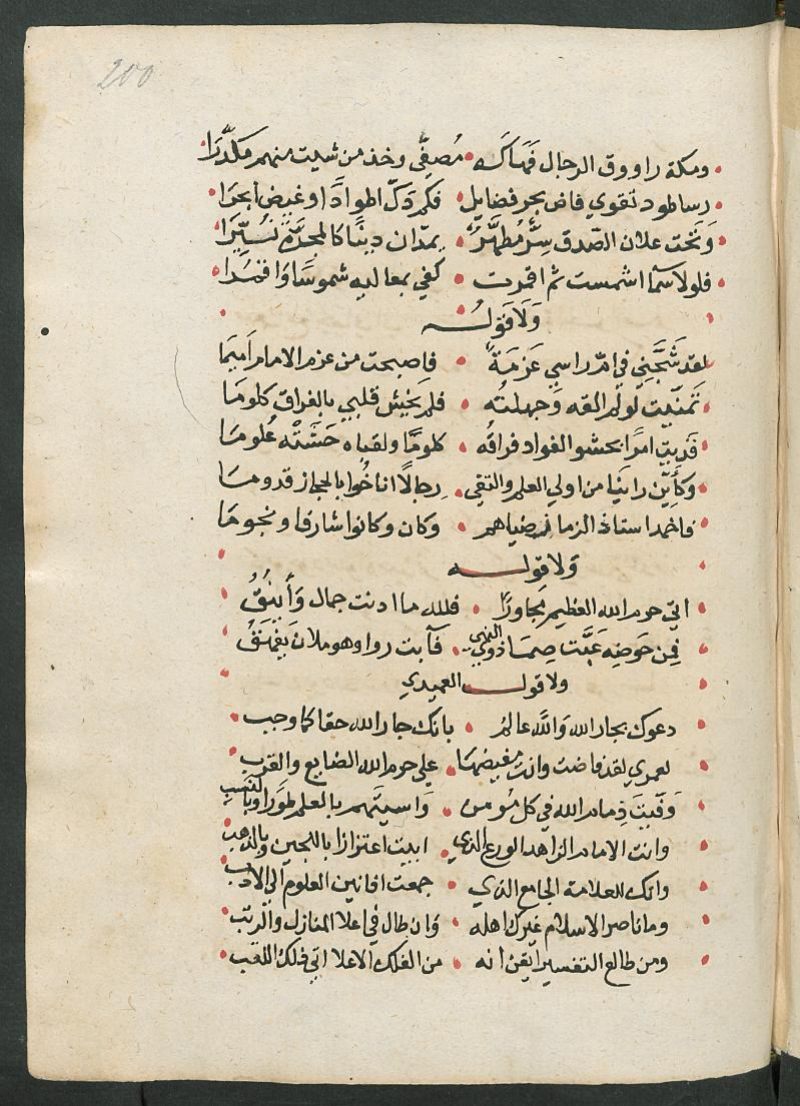 200
ومكة راووق الرجال فهاكه • مصفى وخذ من شيت منهم مكدرا
رسا طود تقوي فاض بحر فضايل • فكم دك اطوادا وغيض ابحرا
وتحت علان الصدق سر مطهر • يمدان دينا كالمجرة نيرا
فلولا سما اشمست ثم اقمرت • كفي بمعاليه شموسا واقمرا
ولا قوله
لقد شجني في ام راسي عزمة • فاصبحت من عزم الامام اميما
تمنيت لو لم القه وجهلته • فلم يخش قلبي بالفراق كلوما
فديت امرا يحشو الفواد فراقه • كلوما ولقياه حشته علوما
وكأين راينا من اولي العلم والتقي • رجالا اناخوا بالحجاز قدوما
فاخمد استاذ الزمان ضياهم • وكان وكانوا شارقا ونجوما
ولا قوله
اتي حرم الله العظيم مجاورا • فلله ما ادنت جمال وأينق
فمن حوضه عبت صماذوي النهي • فآبت رواء وهو ملان يفهق
ولا قول العميدي
دعوك بجار الله والله عالم • بانك جار الله حقا كما وجب
لعمري لقد فاضت وانت مفيضها • علي حرم الله الضايع والقرب
وفيت ذمام الله في كل مومن • واسيتهم بالعلم طورا وبالنشب
وانت الامام الزاهد الورع الذي • ابيت اعتزازا باللجين وبالذهب
وانك العلامة الجامع الذي • جمعت افانين العلوم الي الادب
وما ناصر الاسلام غيرك اهله • وان طال في اعلا المنازل والرتب
ومن طالع التفسير ايقن أنه • من الفلك الاعلا اتي فلك اللقب